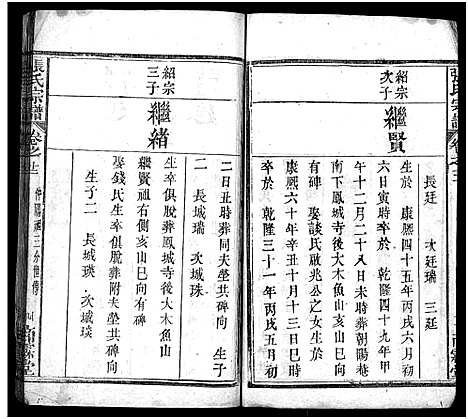 張氏宗譜 卷之三
長廷 次廷瑞 三廷
紹宗次子 繼賢
生於 康熙四十五年丙戌六月初
六日寅時卒於 乾隆四十九年甲
午十二月二十八日未時葬朝陽菴
南下鳳城寺後大木魚山亥山巳向
有碑 娶談氏啟兆公之女生於
康熙六十年辛丑十月十三日亥時
卒於 乾隆三十一年丙戌五月初
二日丑時葬同夫塋共碑向
生子
二 長城瑞 次城珠
紹宗三子 繼緒
生卒俱脫葬鳳城寺後大木魚山
繼賢祖右側亥山巳向有碑
娶錢氏生卒俱脫葬附夫塋共碑向
生子二 長城瑛 次城琰
張氏宗譜 卷之